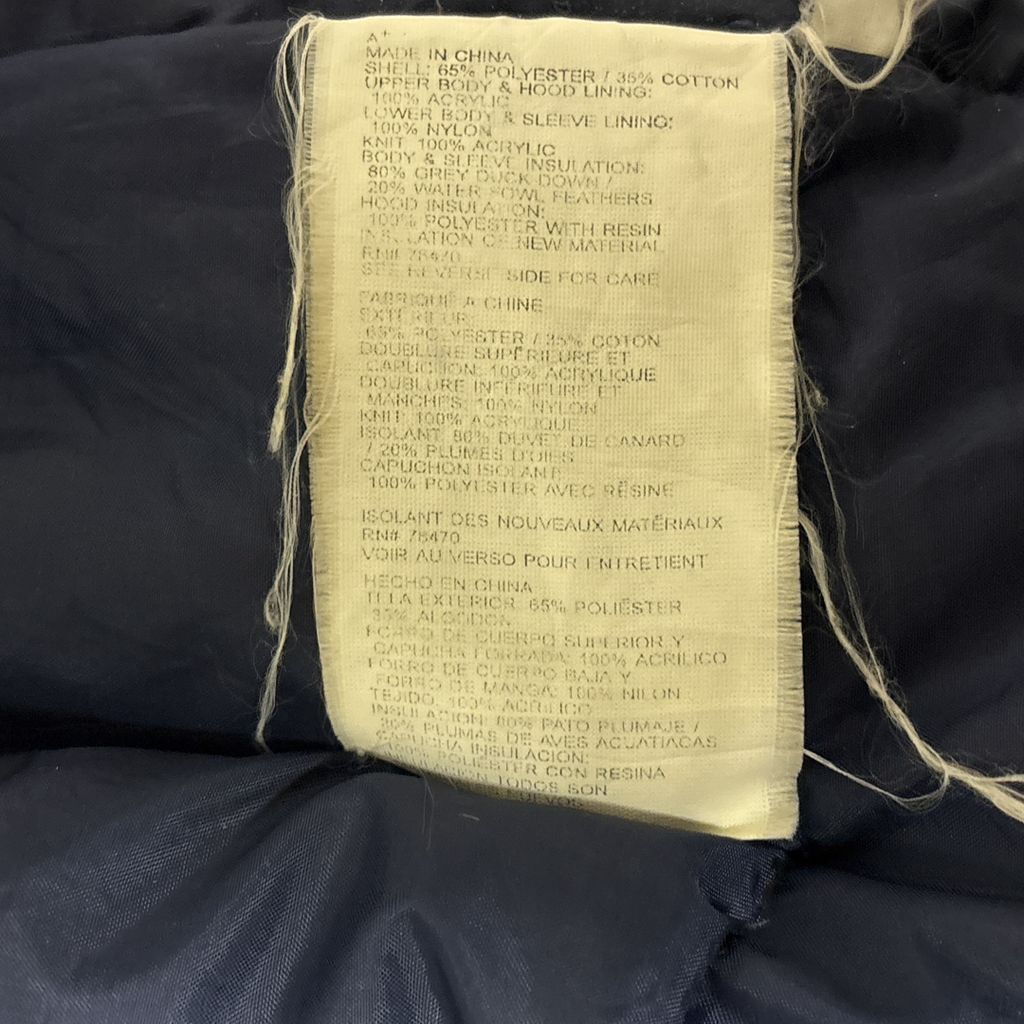 A+
MADE IN CHINA
SHELL: 65% POLYESTER / 35% COTTON
UPPER BODY & HOOD LINING:
100% ACRYLIC
LOWER BODY & SLEEVE LINING:
100% NYLON
KNIT: 100% ACRYLIC
BODY & SLEEVE INSULATION:
80% GREY DUCK DOWN /
20% WATER FOWL FEATHERS
HOOD INSULATION:
100% POLYESTER WITH RESIN
INSULATION OF NEW MATERIAL
RN# 78470
SEE REVERSE SIDE FOR CARE
FABRIQUÉ A CHINE
EXTÉRIEUR:
65% POLYESTER / 35% COTON
DOUBLURE SUPÉRIEURE ET
CAPUCHON: 100% ACRYLIQUE
DOUBLURE INFÉRIEURE ET
MANCHES: 100% NYLON
KNIT: 100% ACRYLIQUE
ISOLANT: 80% DUVET DE CANARD
/ 20% PLUMES D'OIES
CAPUCHON ISOLANT
100% POLYESTER AVEC RÉSINE
ISOLANT DES NOUVEAUX MATÉRIAUX
RN# 78470
VOIR AU VERSO POUR ENTRETIENT
HECHO EN CHINA
TELA EXTERIOR: 65% POLIÉSTER
35% ALGODON
FORRO DE CUERPO SUPERIOR Y
CAPUCHA FORRADA: 100% ACRILICO
FORRO DE CUERPO BAJA Y
FORRO DE MANGA: 100% NILON
TEJIDO: 100% ACRILICO
INSULACION: 80% PATO PLUMAJE /
20% PLUMAS DE AVES ACUATIACAS
CAPUCHA INSULACION:
100% POLIESTER CON RESINA
TODOS SON